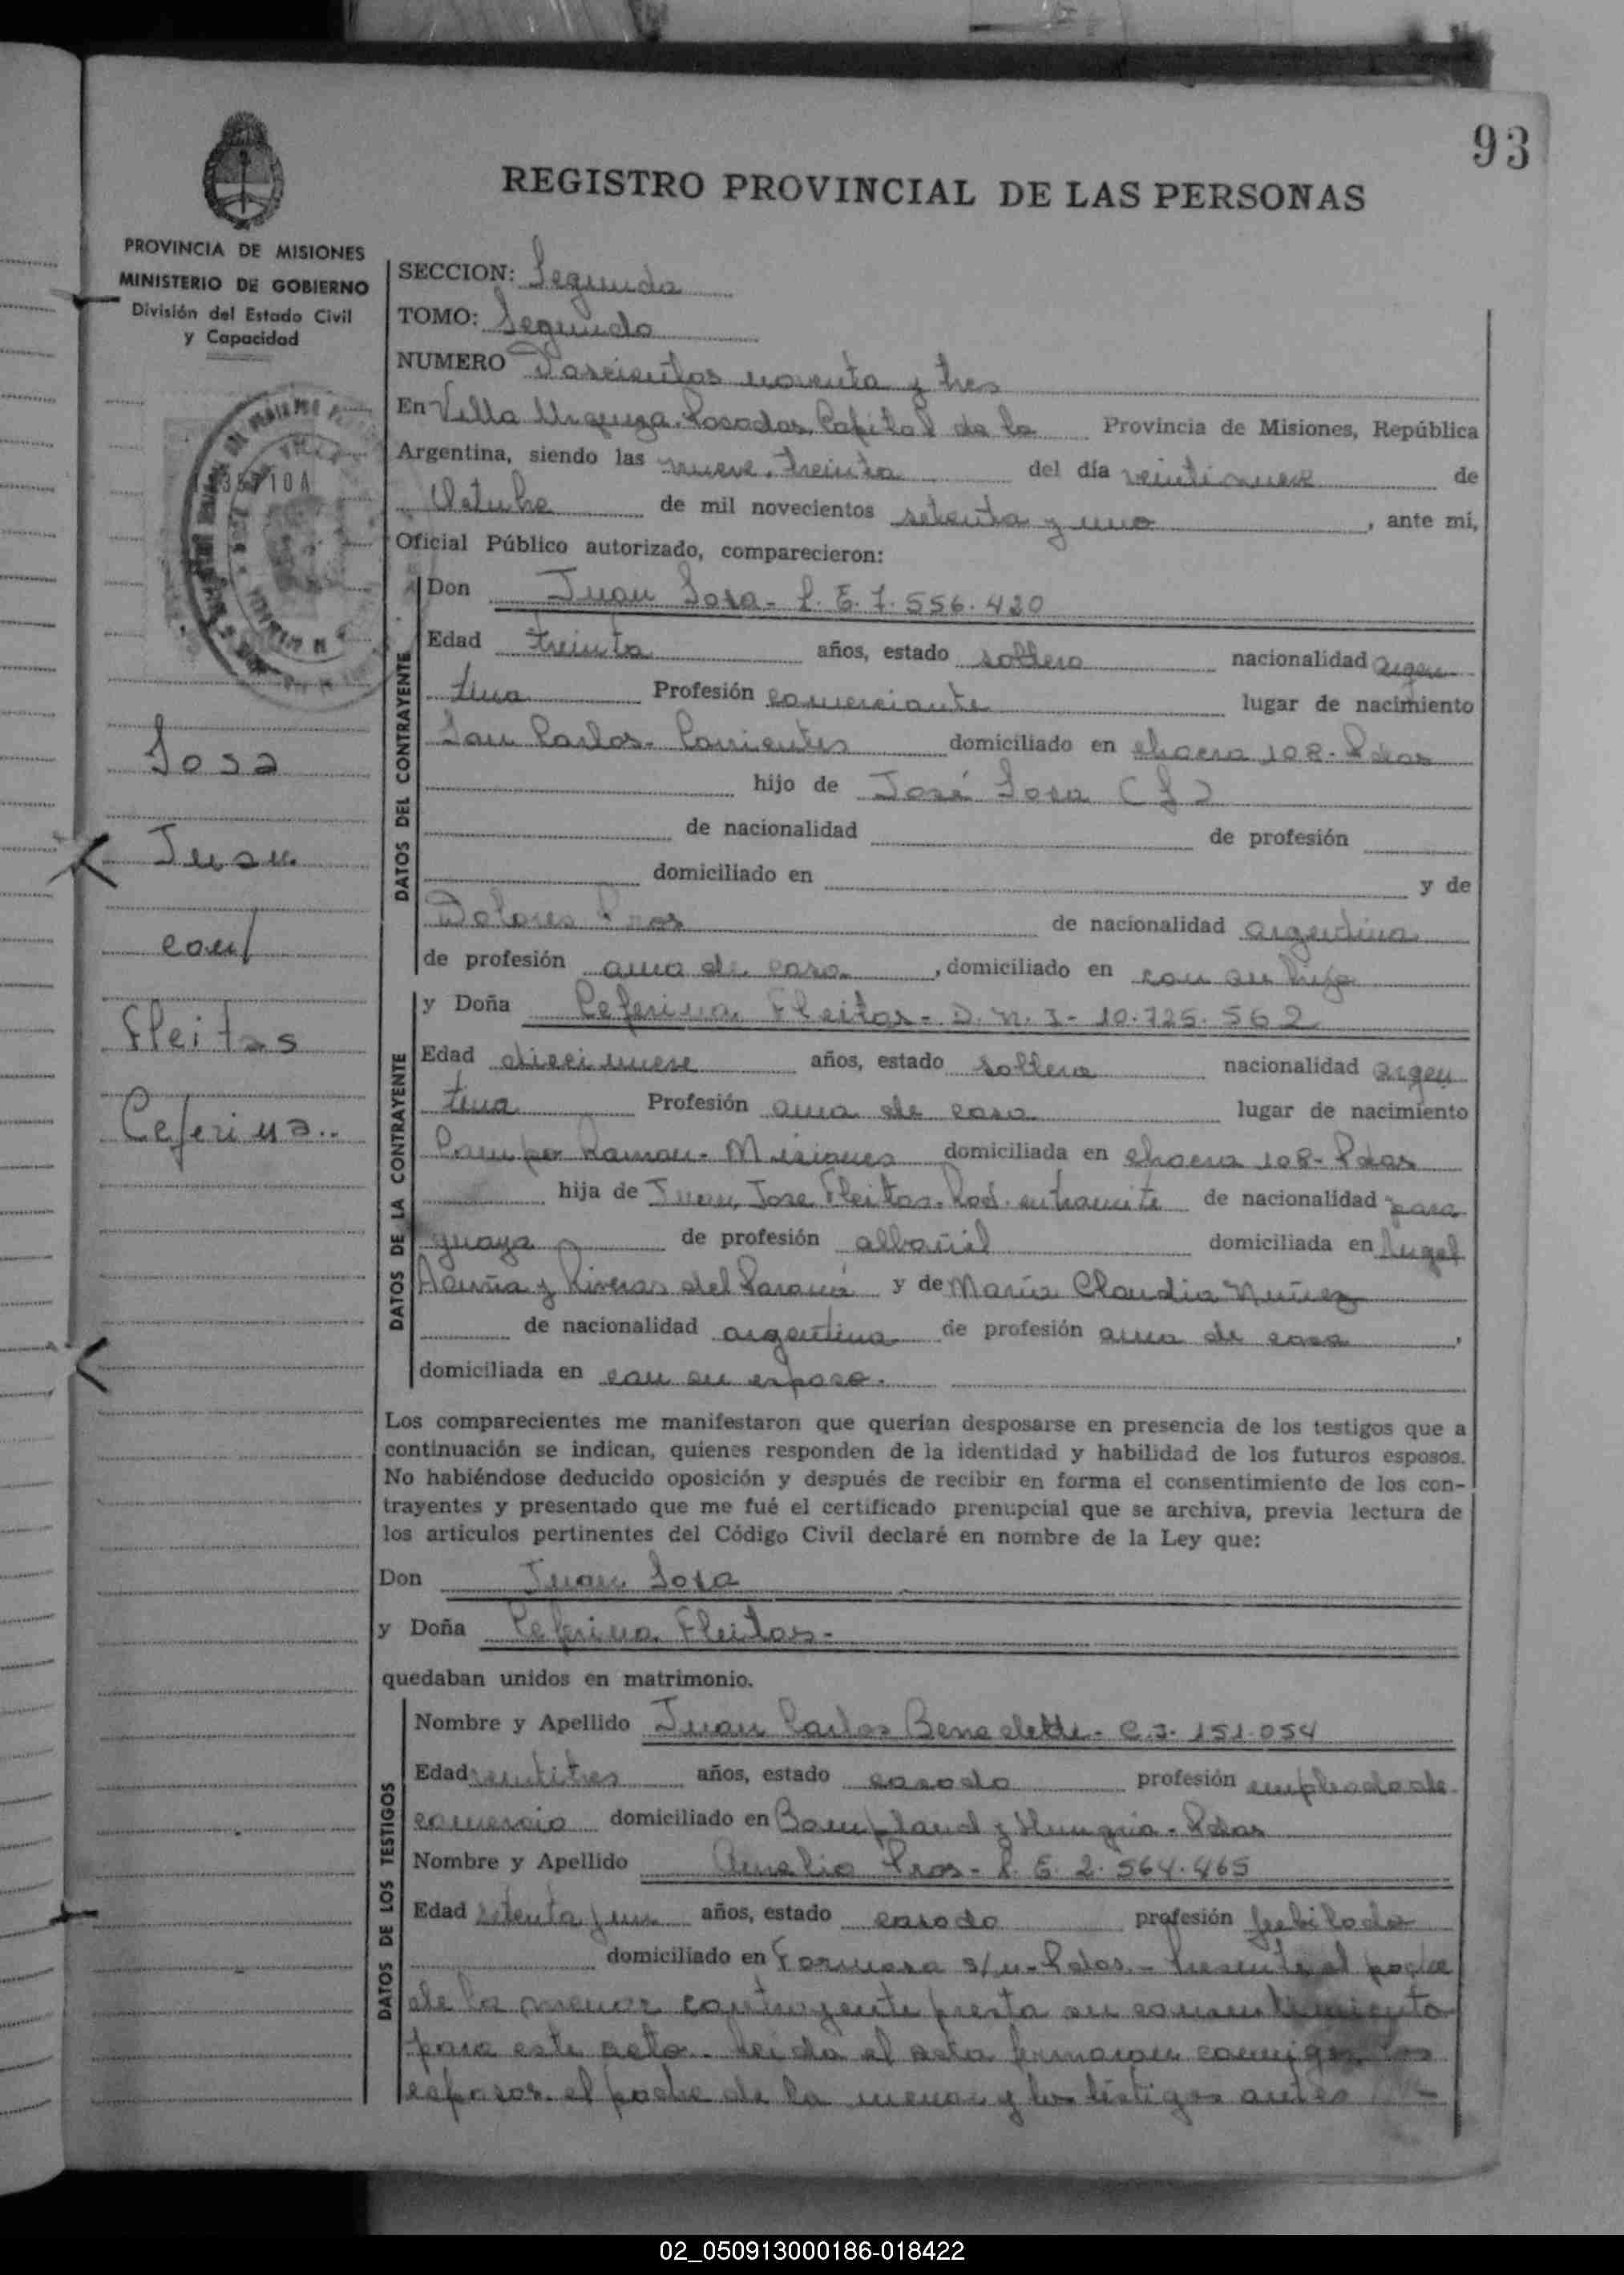 93
REGISTRO PROVINCIAL DE LAS PERSONAS
PROVINCIA DE MISIONES
MINISTERIO DE GOBIERNO
División del Estado Civil
y Capacidad
Sosa
Juan
con/
Fleitas
Ceferina..
SECCION: Segunda
TOMO: Segundo
NUMERO Doscientos noventa y tres
En Villa Urquiza. Posadas, Capital de la Provincia de Misiones, República
Argentina, siendo las nueve. treinta del día veintinueve de
Octubre de mil novecientos setenta y uno, ante mí,
Oficial Público autorizado, comparecieron:
DATOS DEL CONTRAYENTE
Don Juan Sosa - L. E. 7.556.420
Edad treinta años, estado soltero nacionalidad argen
tina Profesión comerciante lugar de nacimiento
San Carlos - Corrientes domiciliado en chacra 108 - Pdas
hijo de José Sosa (f)
de nacionalidad de profesión
domiciliado en y de
Dolores Pros de nacionalidad argentina
de profesión ama de casa, domiciliado en con su hijo
DATOS DE LA CONTRAYENTE
y Doña Ceferina Fleitas - D. N. I - 10.725.562
Edad diecinueve años, estado soltera nacionalidad argen
tina Profesión ama de casa lugar de nacimiento
Campo Ramon - Misiones domiciliada en chacra 108 - Pdas
hija de Juan Jose Fleitas - Rad. en tramite de nacionalidad para
guaya de profesión albañil domiciliada en Angel
Acuña y Riveras del Paraná y de María Claudia Nuñez
de nacionalidad argentina de profesión ama de casa,
domiciliada en con su esposo.
Los comparecientes me manifestaron que querían desposarse en presencia de los testigos que a
continuación se indican, quienes responden de la identidad y habilidad de los futuros esposos.
No habiéndose deducido oposición y después de recibir en forma el consentimiento de los con-
trayentes y presentado que me fué el certificado prenupcial que se archiva, previa lectura de
los artículos pertinentes del Código Civil declaré en nombre de la Ley que:
Don Juan Sosa
y Doña Ceferina Fleitas -
quedaban unidos en matrimonio.
DATOS DE LOS TESTIGOS
Nombre y Apellido Juan Carlos Benedetti - C.I. 151.054
Edad veintitres años, estado casado profesión empleado de
comercio domiciliado en Bompland y Hungria - Pdas
Nombre y Apellido Amelio Pros - L. E. 2.564.465
Edad setenta y un años, estado casado profesión jubilado
domiciliado en Formosa s/n - Pdas. - Presente el padre
de la menor contrayente presta su consentimiento
para este acto. Leida el acta firmaron conmigo los
esposos. el padre de la menor y los testigos antes
02_050913000186-018422